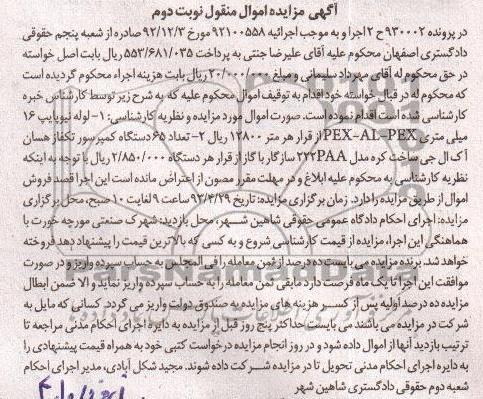 آگهی مزایده اموال منقول نوبت دوم
در پرونده ۹۳۰۰۰۲ ح ۲ اجرا و به موجب اجرائیه ۹۲۱۰۰۵۵۸ مورخ ۹۲/۱۲/۳ صادره از شعبه پنجم حقوقی
دادگستری اصفهان محکوم علیه آقای علیرضا جنتی به پرداخت ۵۵۳/۶۸۱/۰۳۵ ریال بابت اصل خواسته
در حق محکوم له آقای مهرداد سلیمانی و مبلغ ۲۰/۰۰۰/۰۰۰ ریال بابت هزینه اجراء محکوم گردیده است
که محکوم له در قبال خواسته خود اقدام به توقیف اموال محکوم علیه که به شرح زیر توسط کارشناس خبره
کارشناسی شده است اقدام نموده است. صورت اموال مورد مزایده و نظریه کارشناسی: ۱- لوله نیوپایپ ۱۶
میلی متری PEX-AL-PEX از قرار هر متر ۱۲۸۰۰ ریال ۲- تعداد ۶۵ دستگاه کمپرسور تکفاز هسان
آک ال جی ساخت کره مدل ۲۲۲PAA سازگار با گاز از قرار هر دستگاه ۲/۸۵۰/۰۰۰ ریال با توجه به اینکه
نظریه کارشناسی به محکوم علیه ابلاغ و در مهلت مقرر مصون از اعتراض مانده است این اجرا قصد فروش
اموال از طریق مزایده را دارد. زمان برگزاری مزایده: تاریخ ۹۳/۴/۲۹ ساعت ۹ لغایت ۱۰ صبح، محل برگزاری
مزایده: اجرای احکام دادگاه عمومی حقوقی شاهین شـــهر، محل بازدید: شهرک صنعتی مورچه خورت با
هماهنگی این اجرا، مزایده از قیمت کارشناسی شروع و به کسی که بالاترین قیمت را پیشنهاد دهد فروخته
خواهد شد. برنده مزایده می بایست ده درصد از ثمن معامله را فی المجلس به حساب سپرده واریز و در صورت
موافقت این اجرا تا یک ماه فرصت دارد مابقی ثمن معامله را به حساب سپرده واریز نماید و الا ضمن ابطال
مزایده ده درصد اولیه پس از کســر هزینه های مزایده به صندوق دولت واریز می گردد. کسانی که مایل به
شرکت در مزایده می باشند می بایست حداکثر پنج روز قبل از مزایده به دایره اجرای احکام مدنی مراجعه تا
ترتیب بازدید آنها از اموال داده شود و در روز انجام مزایده درخواست کتبی خود به همراه قیمت پیشنهادی را
به دایره اجرای احکام مدنی تحویل تا در مزایده شــرکت داده شوند. مجید شکل آبادی، مدیر اجرای احکام
شعبه دوم حقوقی دادگستری شاهین شهر
ParsNamadData